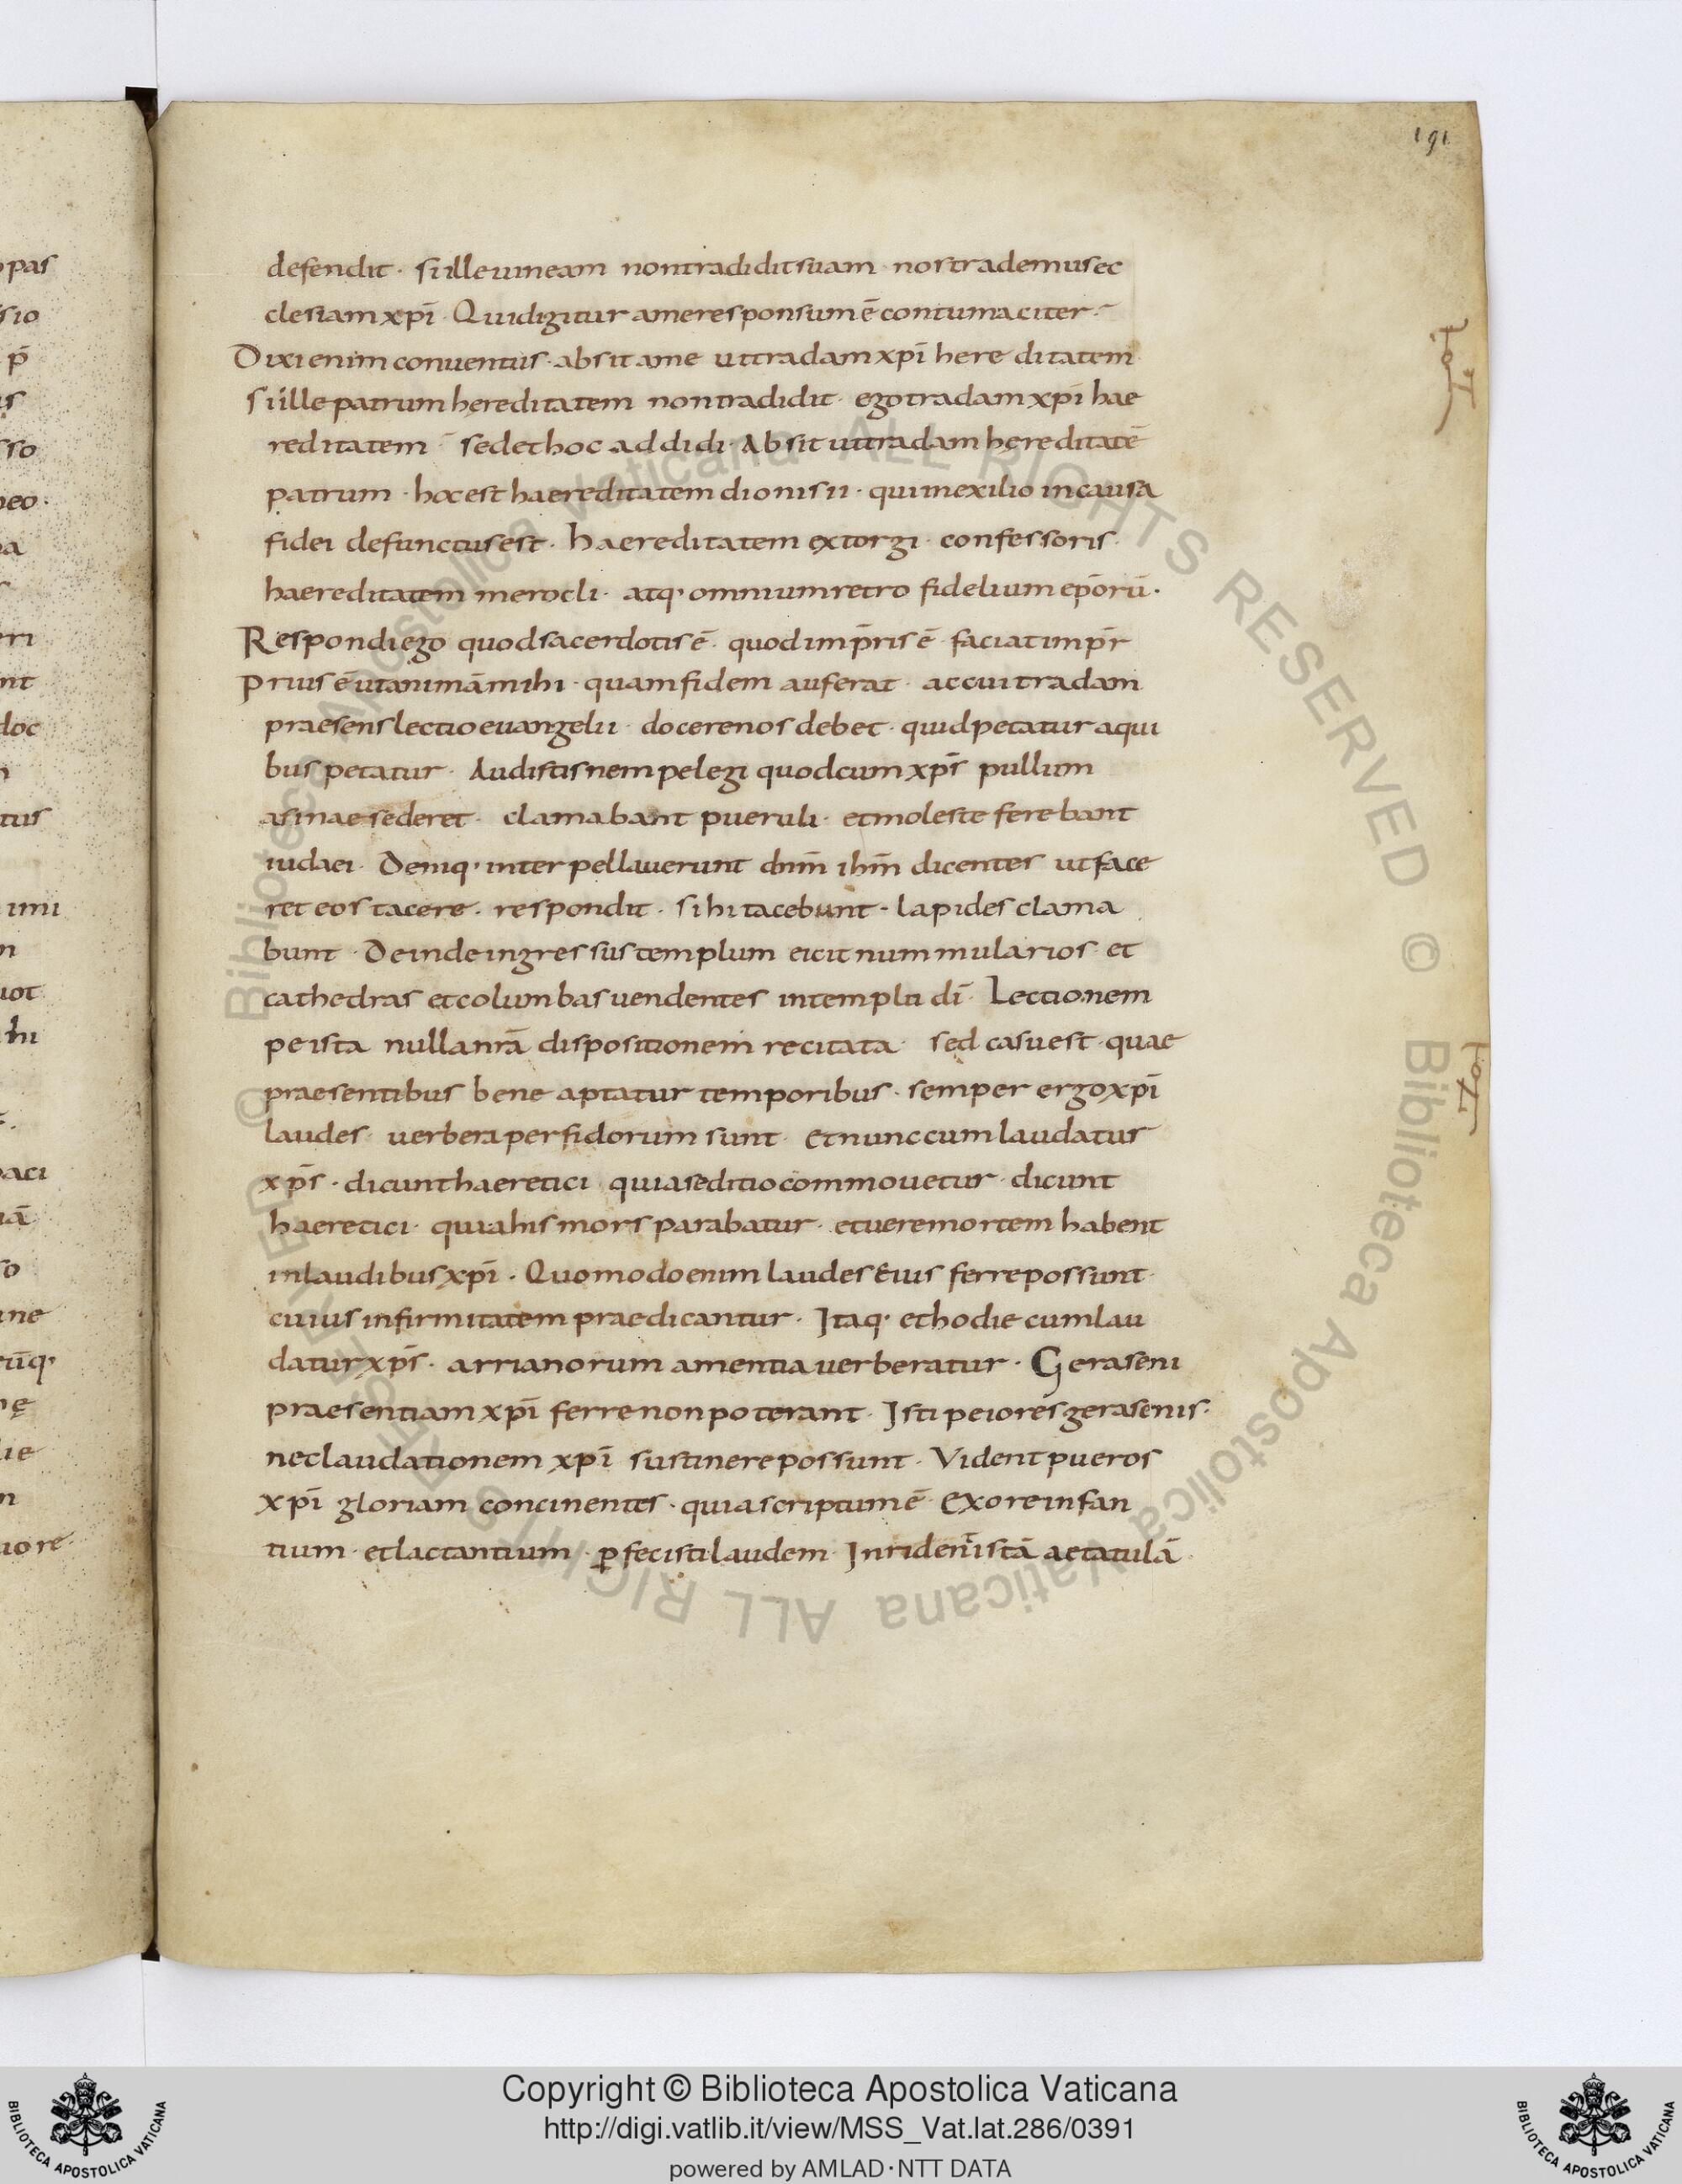 191
defendit · si ille uineam non tradidit suam · nos trademus ec
clesiam xp̄i · Quid igitur a me responsum ē contumaciter ·
Dixi enim conuentus · absit a me ut tradam xp̄i hereditatem
Si ille patrum hęreditatem non tradidit · ego tradam xp̄i hae
reditatem sed et hoc addidi · Absit ut tradam hęreditatē
patrum · hoc est haereditatem dionisii · qui in exilio in causa
fidei defunctus est · haereditatem extorgi · confessoris ·
haereditatem merocli · atq· omnium retro fidelium ep̄orū ·
Respondi ego quod sacerdotis ē · quod imp̄ris ē faciat imp̄r
Prius ē ut animā mihi · quam fidem auferat · ac cui tradam
praesens lectio euangelii · docere nos debet · quid petatur a qui
bus petatur · Audistis nempe legi quod cum xp̄s pullum
asinae sederet · clamabant pueruli · et moleste ferebant
iudaei · Deniq· interpellauerunt dn̄m ihm̄ dicentes ut face
ret eos tacere · respondit · si hi tacebunt · lapides clama
bunt · Deinde ingressus templum eicit nummularios · et
cathedras et columbas uendentes in templi dī · Lectio nem
pe ista nulla nrā dispositionem recitata · sed casu est · quae
praesentibus bene aptatur temporibus · semper ergo xp̄i
laudes · uerbera perfidorum sunt · et nunc cum laudatur
xp̄s · dicunt haeretici quia seditio commouetur · dicunt
haeretici · quia his mors parabatur · et uere mortem habent
in laudibus xp̄i · Quomodo enim laudes eius ferre possunt ·
cuius infirmitatem praedicantur · Itaq· et hodie cum lau
datur xp̄s · arrianorum amentia uerberatur · Geraseni
praesentiam xp̄i ferre non poterant · Isti peiores gerasenis ·
nec laudationem xp̄i sustinere possunt · Vident pueros
xp̄i gloriam concinentes · quia scriptum ē · ex ore infan
tium · et lactantium · ꝑfecisti laudem · Inriden̄t istā aetatulā ·
Copyright © Biblioteca Apostolica Vaticana
http://digi.vatlib.it/view/MSS_Vat.lat.286/0391
powered by AMLAD·NTT DATA